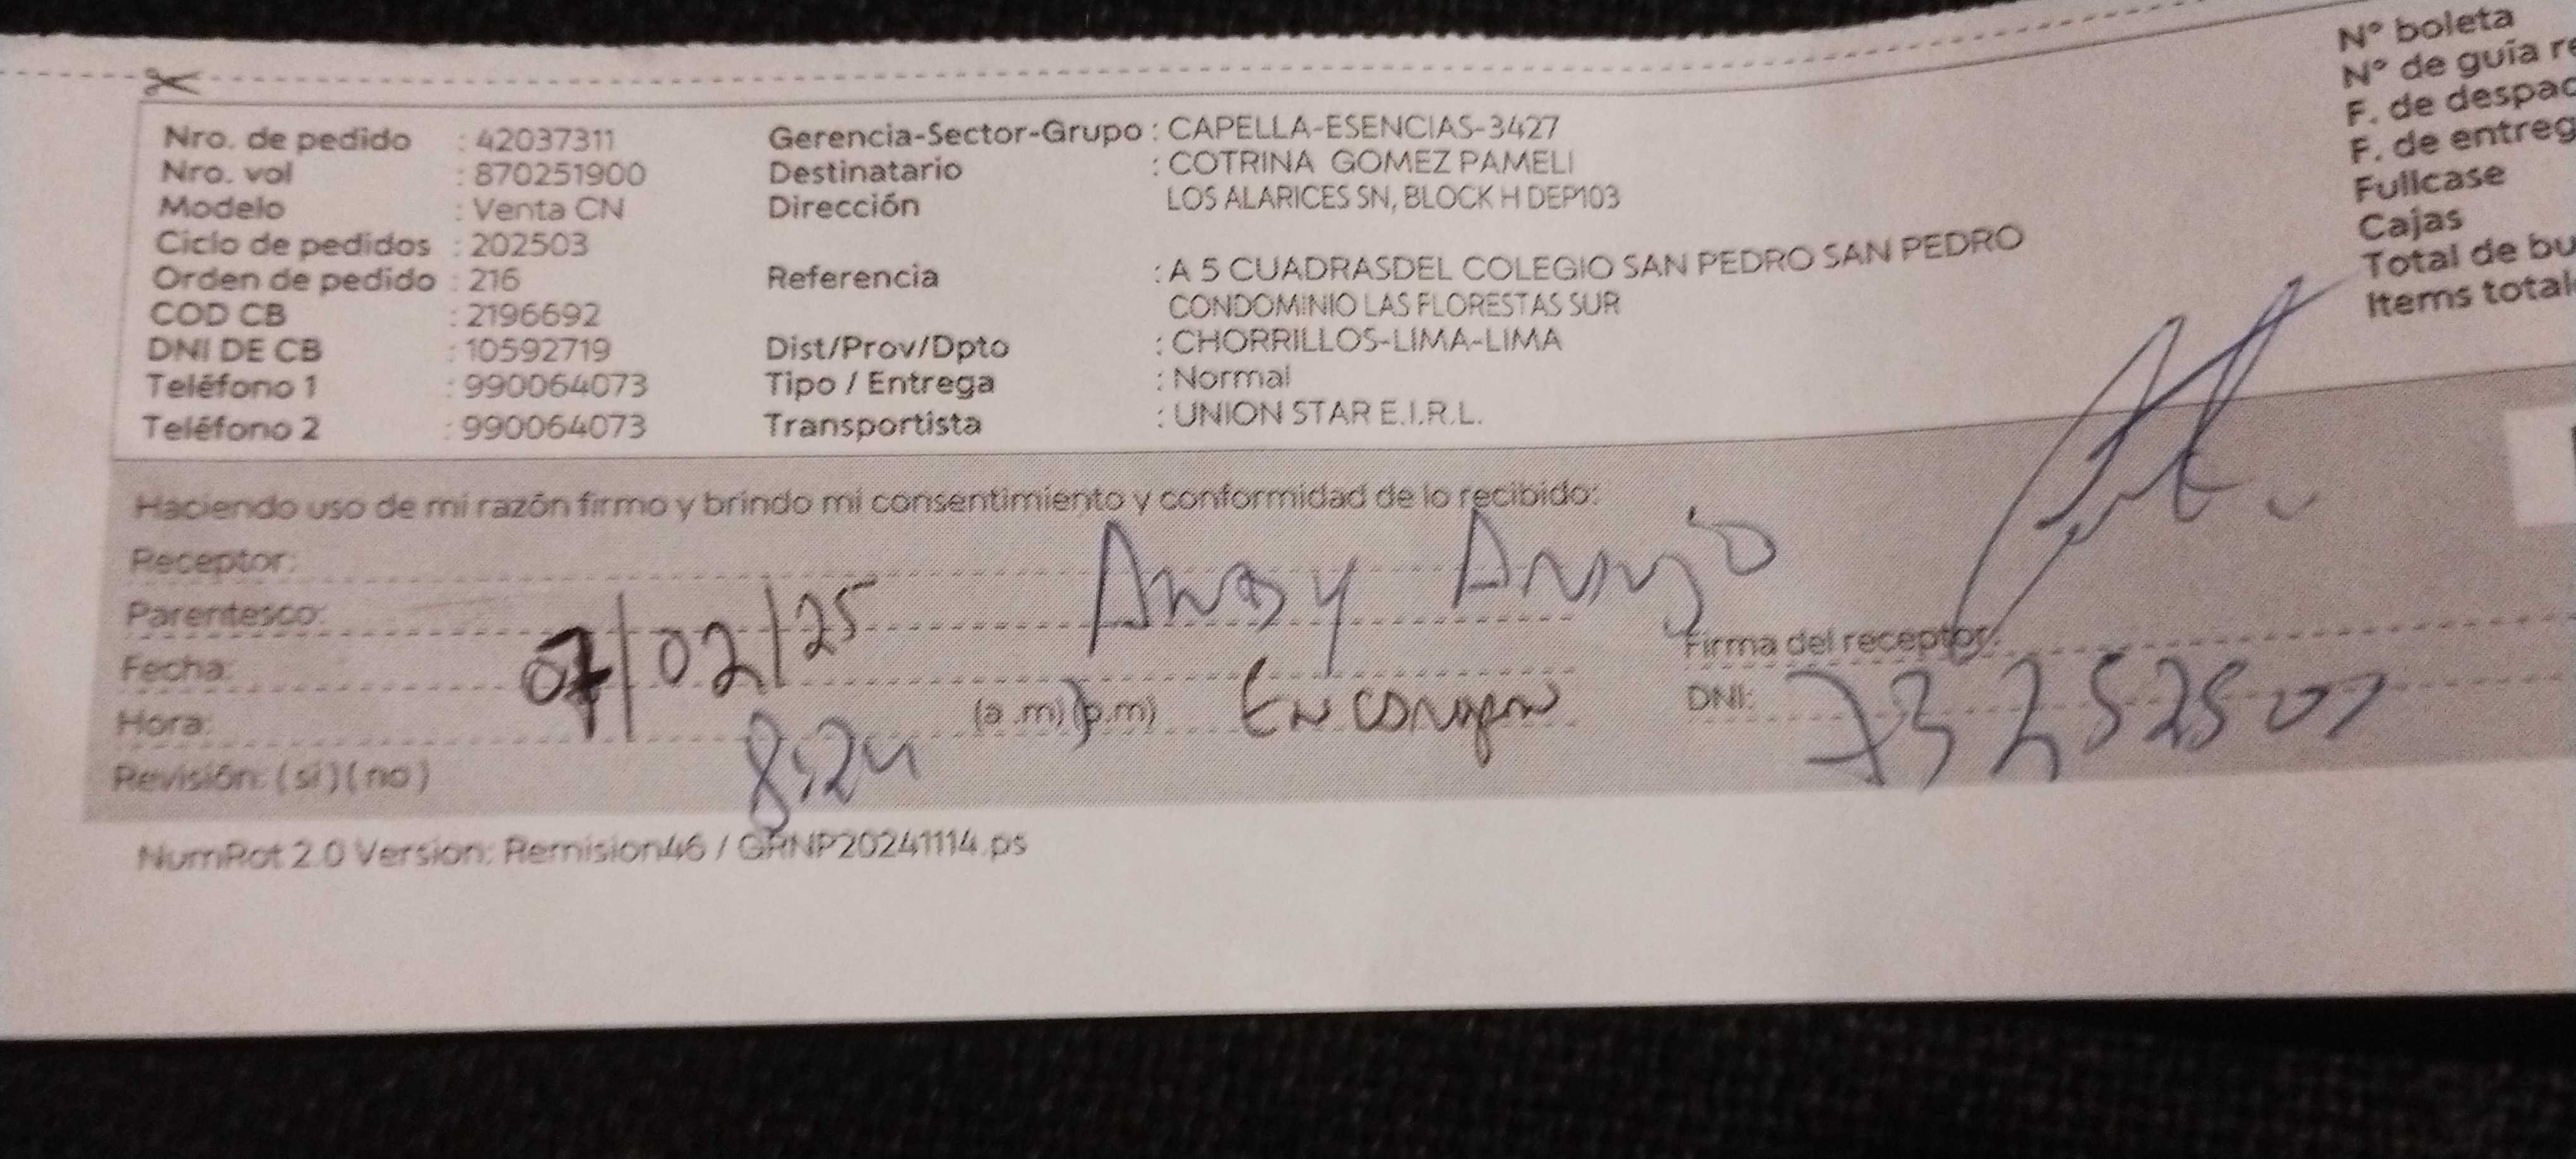 Nro. de pedido : 42037311
Nro. vol : 870251900
Modelo : Venta CN
Ciclo de pedidos : 202503
Orden de pedido : 216
COD CB : 2196692
DNI DE CB : 10592719
Teléfono 1 : 990064073
Teléfono 2 : 990064073
Gerencia-Sector-Grupo : CAPELLA-ESENCIAS-3427
Destinatario : COTRINA GOMEZ PAMELI
Dirección LOS ALARICES SN, BLOCK H DEP103
Referencia : A 5 CUADRASDEL COLEGIO SAN PEDRO SAN PEDRO
CONDOMINIO LAS FLORESTAS SUR
Dist/Prov/Dpto : CHORRILLOS-LIMA-LIMA
Tipo / Entrega : Normal
Transportista : UNION STAR E.I.R.L.
N° boleta
N° de guía re
F. de despac
F. de entreg
Fullcase
Cajas
Total de bu
Items total
Haciendo uso de mi razón firmo y brindo mi consentimiento y conformidad de lo recibido:
Receptor:
Parentesco:
Fecha: 07/02/25
Hora: 8:24 (a.m) (p.m)
Revisión: (si) (no)
Firma del receptor:
DNI:
NumRot 2.0 Version: Remision46 / GRNP20241114.ps